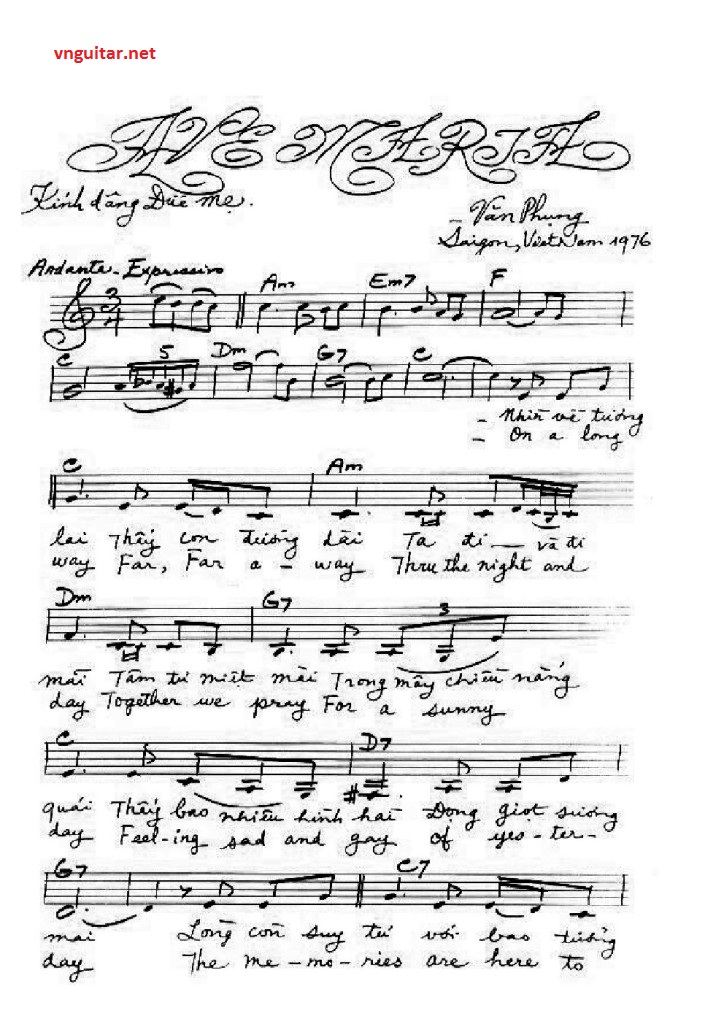 vnguitar.net
AVE MARIA
Kính dâng Đức mẹ.
_ Văn Phụng
Saigon, Viet Nam 1976
Andante - Expressivo
3 4
Am Em7 F
C 5 Dm G7 C
_ Nhìn về tương
_ On a long
C Am
lai Thấy con đường dài Ta đi _ và đi
way Far, Far a - way Thru the night and
Dm G7 3
mãi Tâm tư miệt mài Trong mây chiều nắng
day Together we pray For a sunny
C D7
quái Thấy bao nhiêu hình hài Đọng giọt sương
day Feel-ing sad and gay of yes-ter-
G7 C7
mai Lòng còn suy tư với bao tưởng
day The me-mo-ries are here to